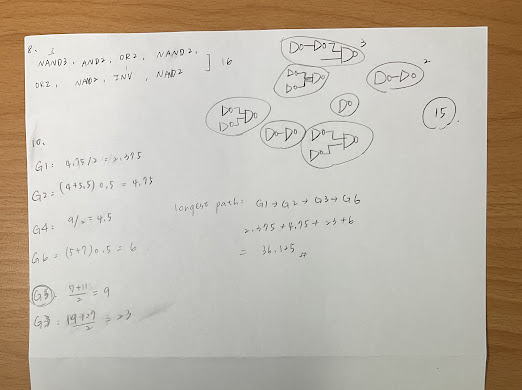 8. 3
NAND3, AND2, OR2, NAND2,
OR2, NAND2, INV, NAND2 ] 16
3
2
15.
10.
G1: 4.75/2 = 2.375
G2 = (4+5.5) 0.5 = 4.75
G4: 9/2 = 4.5
G6 = (5+7) 0.5 = 6
G5: 7+11/2 = 9
G3: 19+27/2 = 23
longest path: G1 → G2 → G3 → G6
2.375 + 4.75 + 23 + 6
= 36.125